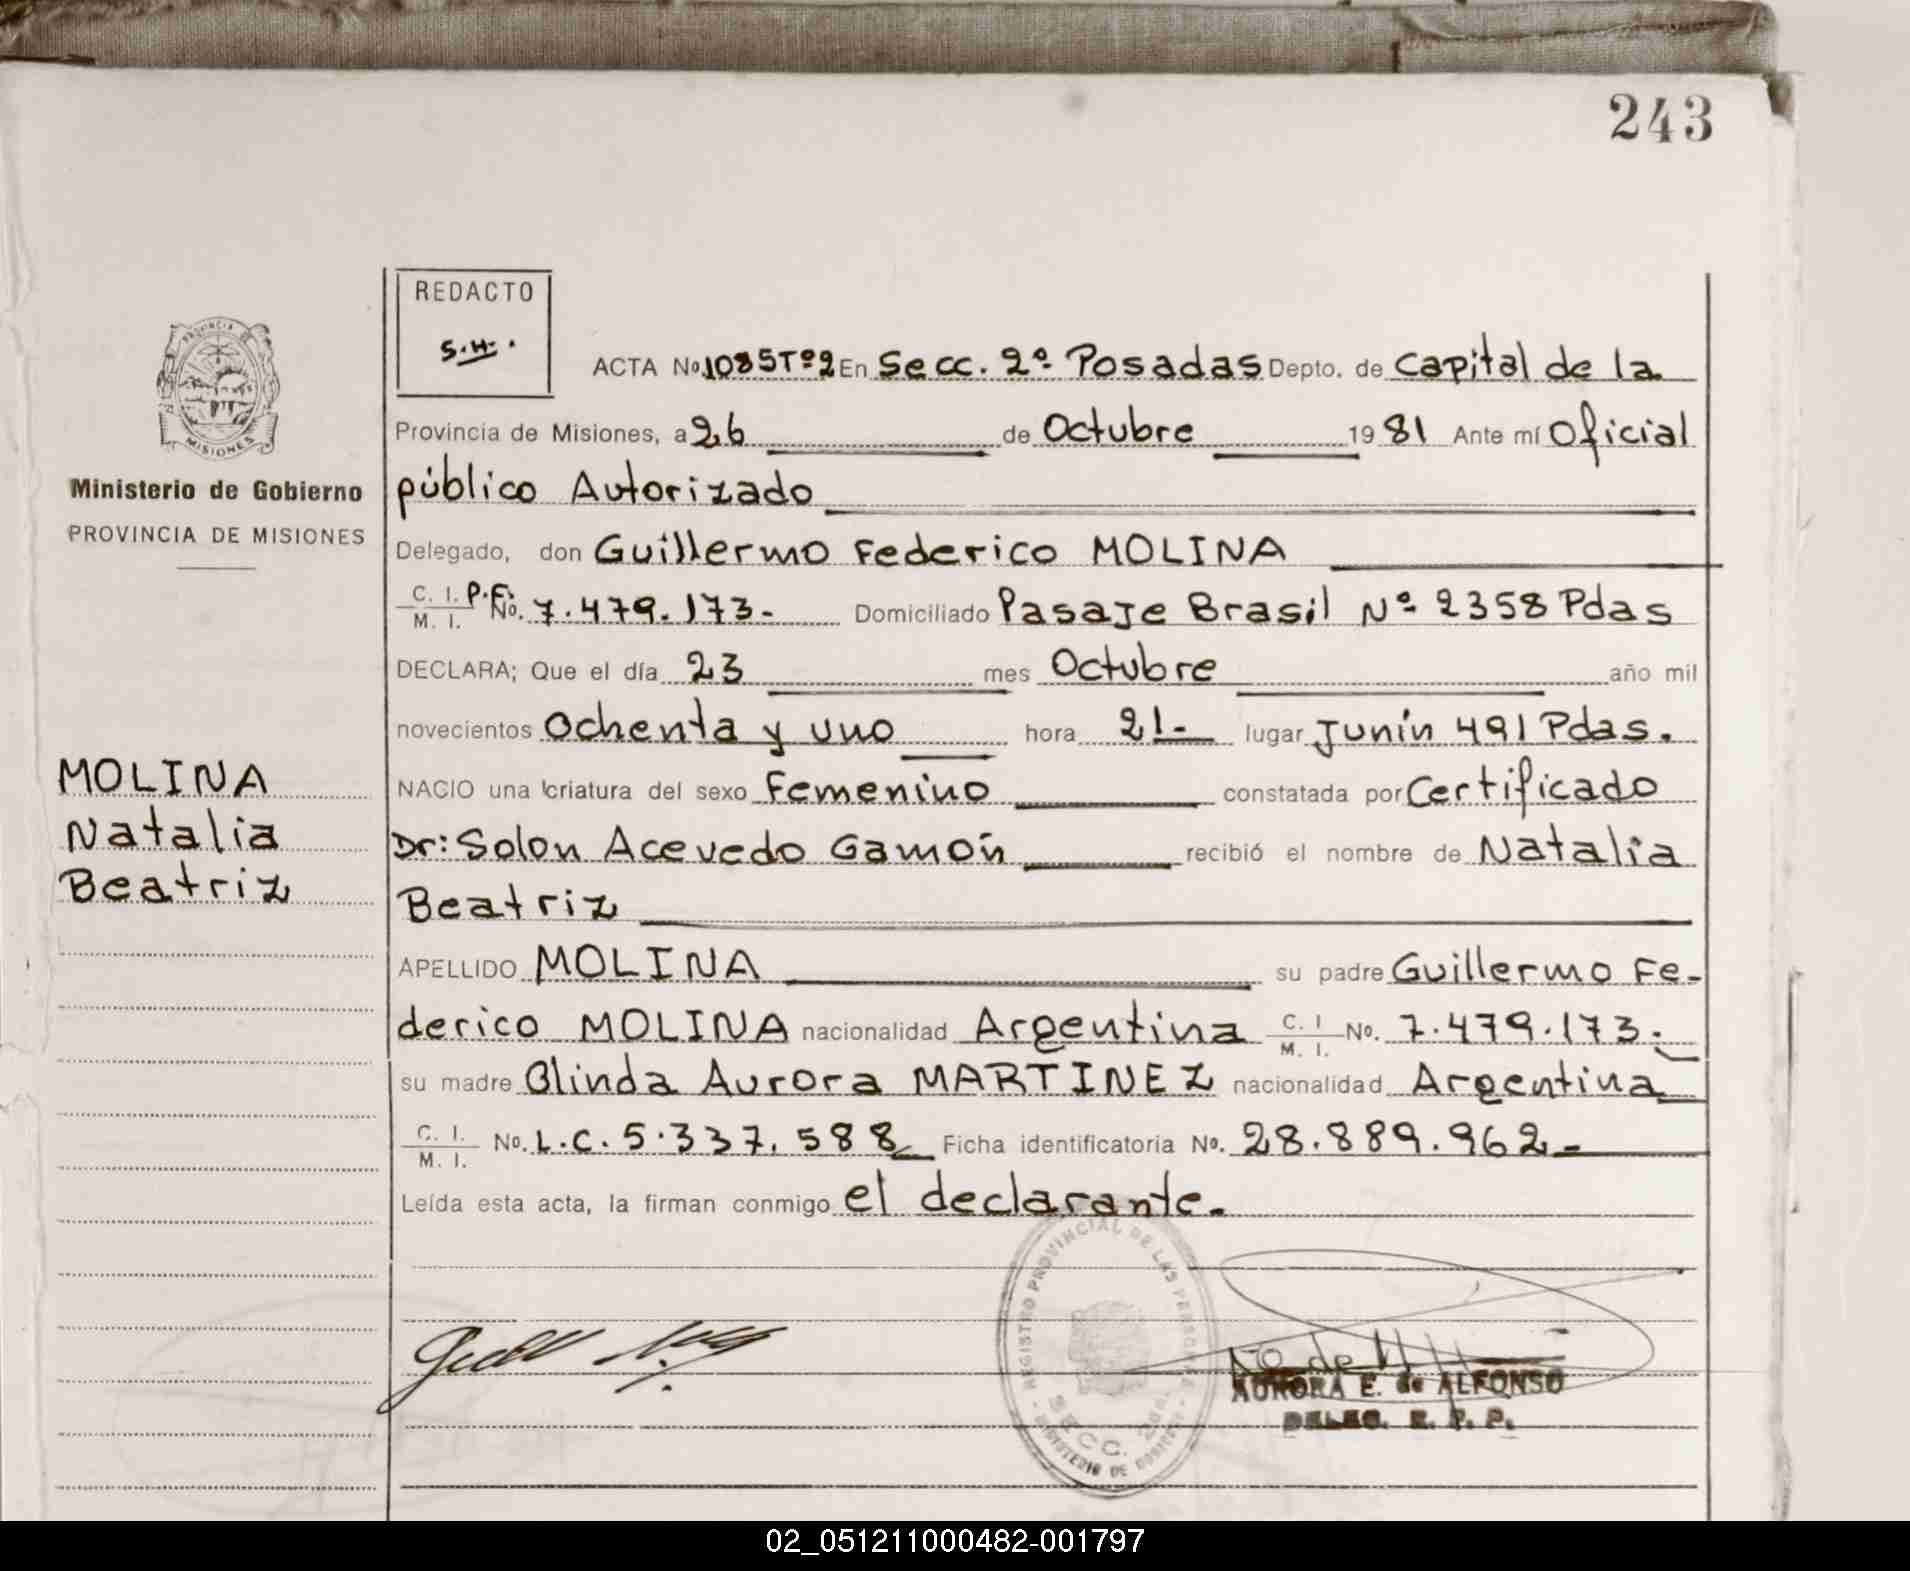 243
REDACTO
S.H.
PROVINCIA DE
MISIONES
Ministerio de Gobierno
PROVINCIA DE MISIONES
MOLINA
Natalia
Beatriz
ACTA No. 1085 Tº 2 En Secc. 2º Posadas Depto. de Capital de la
Provincia de Misiones, a 26 de Octubre 19 81 Ante mí Oficial
público Autorizado
Delegado, don Guillermo Federico MOLINA
C. I. P.F. M. I. No. 7.479.173- Domiciliado Pasaje Brasil Nº 2358 Pdas
DECLARA; Que el día 23 mes Octubre año mil
novecientos Ochenta y uno hora 21- lugar Junín 491 Pdas.
NACIO una criatura del sexo Femenino constatada por Certificado
Dr: Solon Acevedo Gamón recibió el nombre de Natalia
Beatriz
APELLIDO MOLINA su padre Guillermo Fe-
derico MOLINA nacionalidad Argentina C. I M. I. No. 7.479.173.
su madre Olinda Aurora MARTINEZ nacionalidad Argentina
C. I. M. I. No. L.C. 5.337.588 Ficha identificatoria No. 28.889.962-
Leída esta acta, la firman conmigo el declarante.
REGISTRO PROVINCIAL DE LAS PERSONAS
SECC. 2da.
MINISTERIO DE GOBIERNO
AURORA E. de ALFONSO
DELEG. R. P. P.
02_051211000482-001797